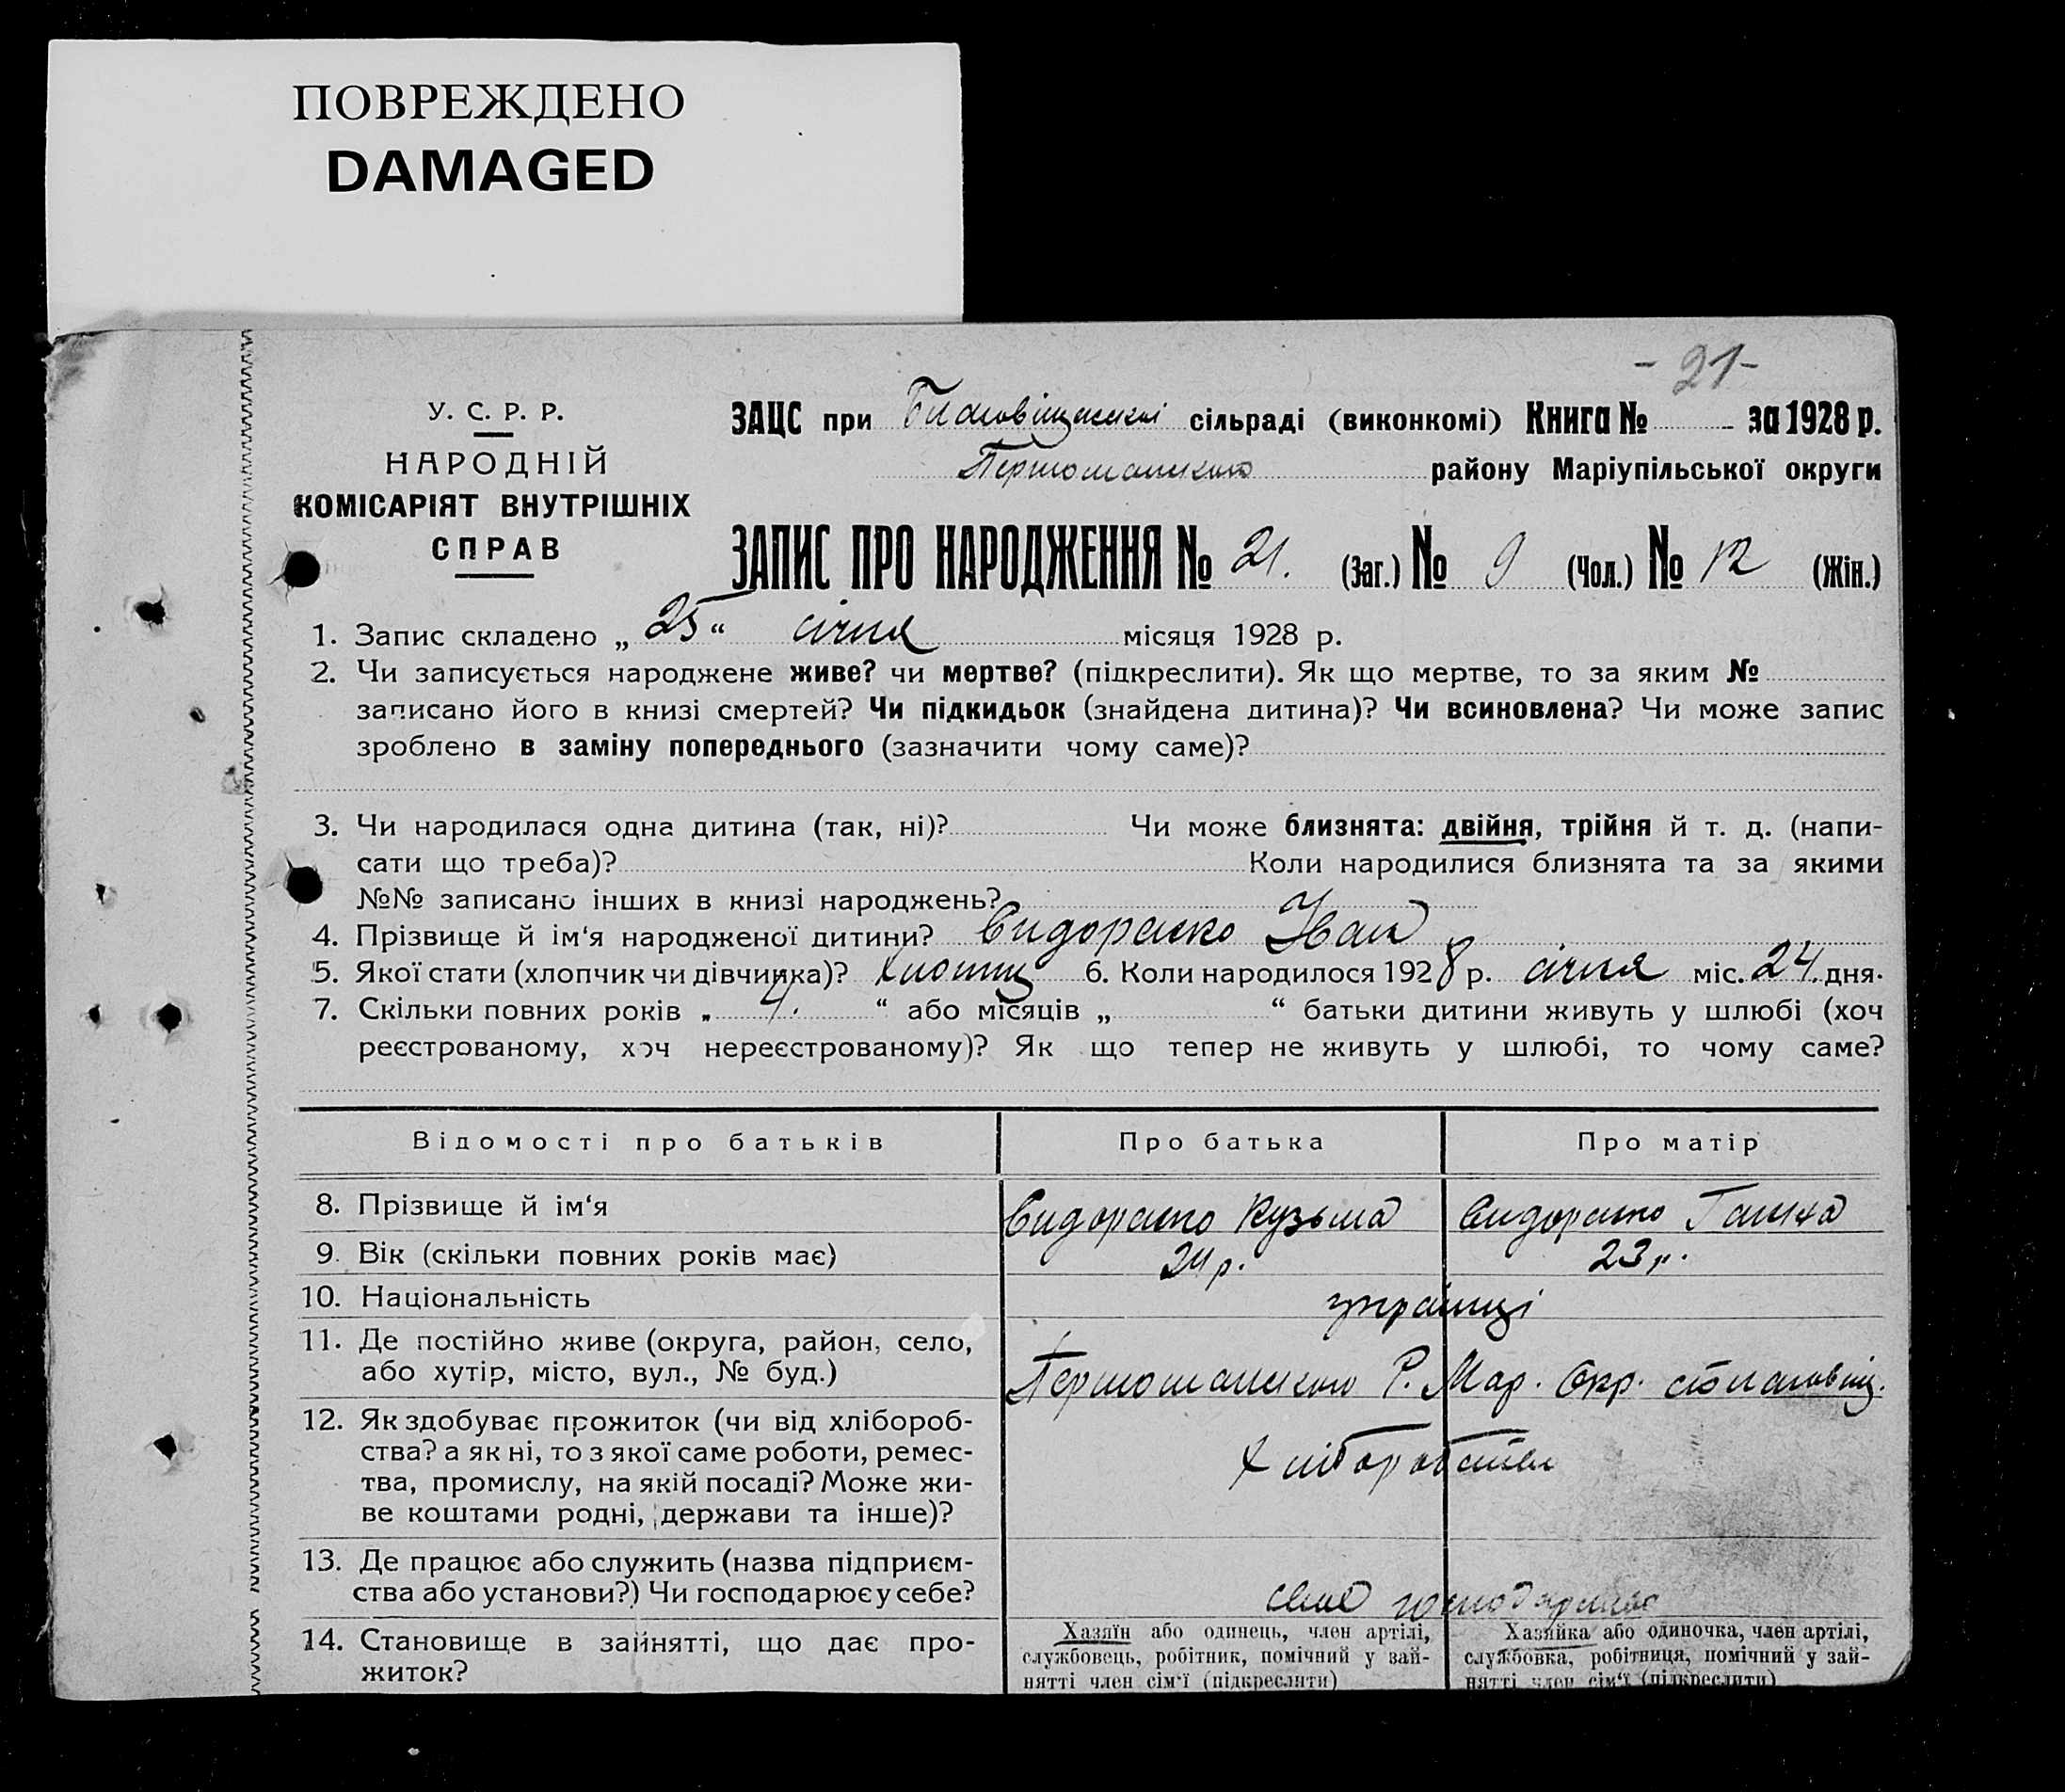 ПОВРЕЖДЕНО
DAMAGED
- 21 -
У. С. Р. Р.
НАРОДНІЙ
КОМІСАРІЯТ ВНУТРІШНІХ
СПРАВ
ЗАЦС при сільраді (виконкомі) Книга № за 1928 р.
району Маріупільської округи
ЗАПИС ПРО НАРОДЖЕННЯ № 21. (Заг.) № 9 (Чол.) № 12 (Жін.)
1. Запис складено „ 25 “ січня місяця 1928 р.
2. Чи записується народжене живе? чи мертве? (підкреслити). Як що мертве, то за яким №
записано його в книзі смертей? Чи підкидьок (знайдена дитина)? Чи всиновлена? Чи може запис
зроблено в заміну попереднього (зазначити чому саме)?
3. Чи народилася одна дитина (так, ні)? Чи може близнята: двійня, трійня й т. д. (напи-
сати що треба)? Коли народилися близнята та за якими
№№ записано інших в книзі народжень?
4. Прізвище й ім‘я народженої дитини? Іван
5. Якої стати (хлопчик чи дівчинка)? хлопец 6. Коли народилося 1928 р. січня міс. 24. дня.
7. Скільки повних років „ 4. “ або місяців „ “ батьки дитини живуть у шлюбі (хоч
реєстрованому, хоч нереєстрованому)? Як що тепер не живуть у шлюбі, то чому саме?
Відомості про батьків Про батька Про матір
8. Прізвище й ім‘я Кузьма Ганна
9. Вік (скільки повних років має) 24 р. 23 р.
10. Національність українці
11. Де постійно живе (округа, район, село,
або хутір, місто, вул., № буд.) Р. Мар. Окр.
12. Як здобуває прожиток (чи від хлібороб-
ства? а як ні, то з якої саме роботи, ремес-
тва, промислу, на якій посаді? Може жи-
ве коштами родні, держави та інше)?
Хліборобство
13. Де працює або служить (назва підприєм-
ства або установи?) Чи господарює у себе?
14. Становище в зайнятті, що дає про-
житок?
Хазяїн або одинець, член артілі,
службовець, робітник, помічний у зай-
нятті член сім‘ї (підкреслити)
Хазяйка або одиночка, член артілі,
службовка, робітниця, помічний у зай-
нятті член сім‘ї (підкреслити)